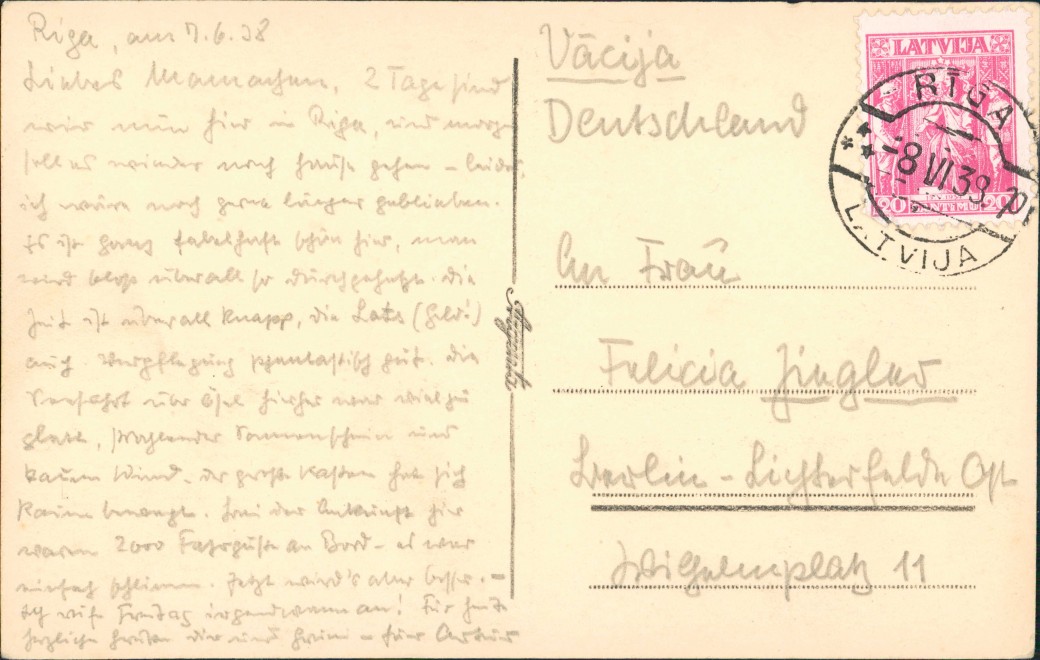 Riga, am 7.6.38
Liebes Mamachen, 2 Tage sind
wir nun hier in Riga, und morgen
soll es wieder nach Hause gehen – leider,
ich wäre noch gerne länger geblieben.
Es ist ganz fabelhaft schön hier, man
wird bloß überall so durchgehetzt. Die
Zeit ist überall knapp, die Lats (Geld!)
auch. Verpflegung phantastisch gut. Die
Seefahrt über Ösel hierher war viel zu
glatt, strahlender Sonnenschein und
kaum Wind. der große Kasten hat sich
kaum bewegt. Bei der Ankunft hier
waren 2000 Fahrgäste an Bord – es war
einfach schlimm. Jetzt wird's aber besser. –
Ich rufe Freitag irgendwann an! Für heute
herzliche Grüße dir und – Artur
Vācija
Deutschland
An Frau
Felicia Ziegler
Berlin – Lichterfelde Ost
Wilhelmplatz 11
LATVIJA
20 SANTIMU 20
RĪGA
8 VI 38
LATVIJA